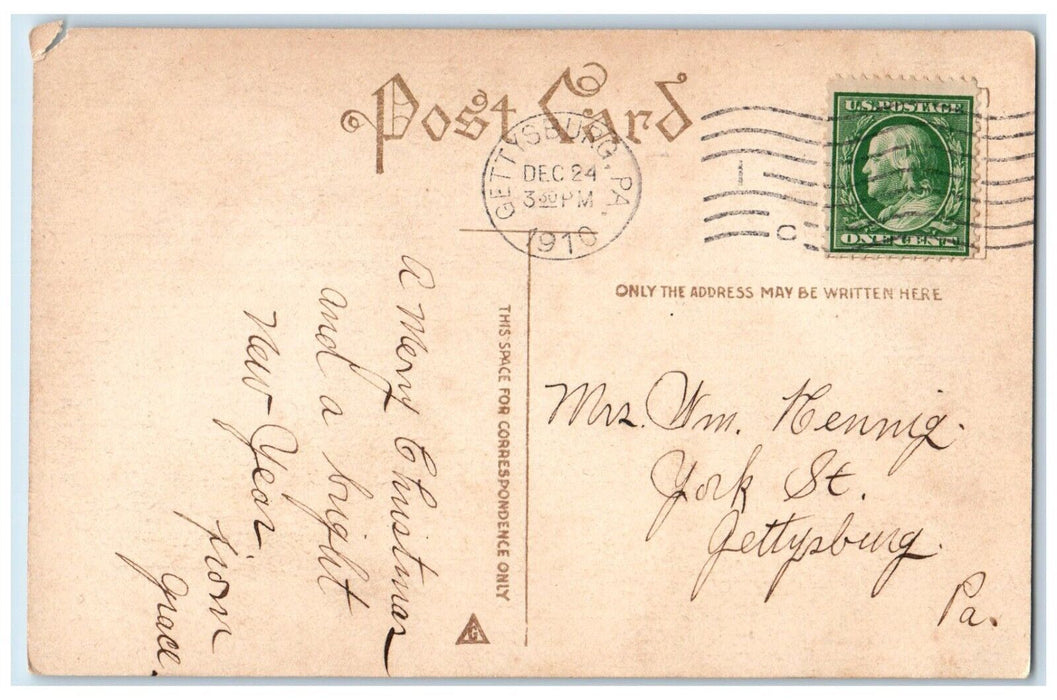 Post Card
GETTYSBURG, PA.
DEC 24
3 30 PM
1910
1
C
U.S. POSTAGE
ONE CENT
ONLY THE ADDRESS MAY BE WRITTEN HERE
THIS SPACE FOR CORRESPONDENCE ONLY
A Merry Christmas
and a bright
New Year.
from
Grace.
Mrs. Wm. Hennig.
York St.
Gettysburg.
Pa.
G